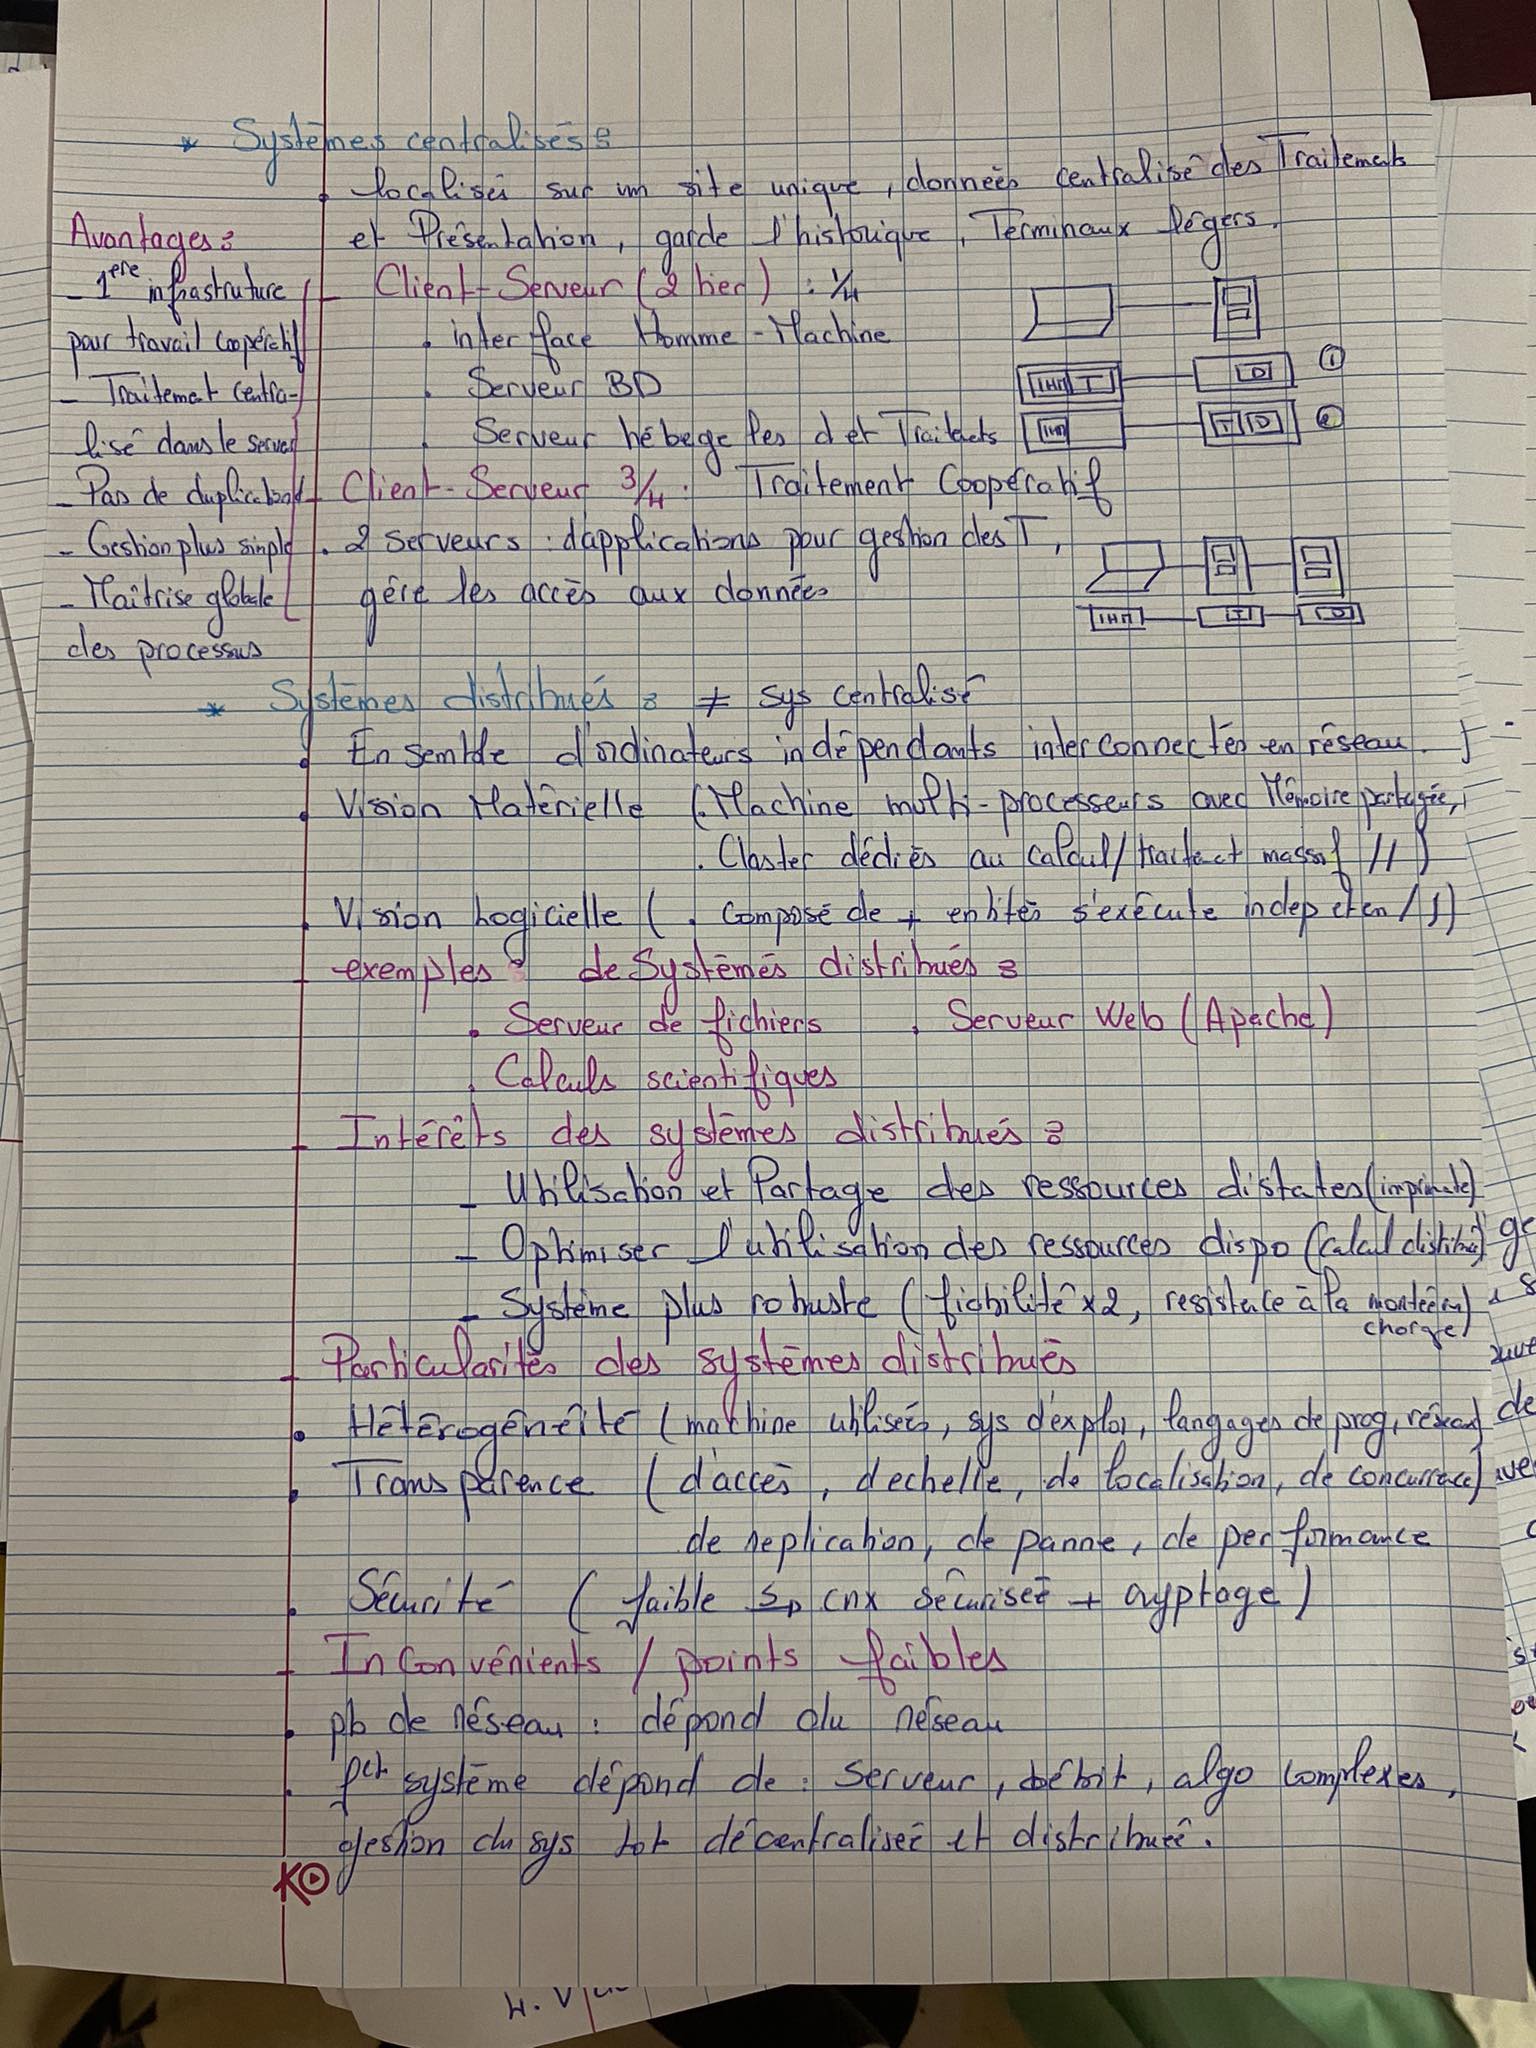 * Systèmes centralisés :
. localisés sur un site unique, données centralisé des Traitements
et Présentation, garde l'historique, Terminaux légers.
Avantages :
- 1ère infrastruture
pour travail coopératif
- Traitement centra-
lisé dans le serveur
- Pas de duplication
- Gestion plus simple
- Maîtrise globale
des processus
- Client-Serveur (2 tier) :
. interface Homme-Machine
. Serveur BD
. Serveur hébege les d et Traitects
IHM T
D
1
IHM
T D
2
- Client-Serveur 3/4 : Traitement Coopératif
. 2 serveurs : d'applications pour gestion des T,
gère les accès aux données
IHM
T
D
* Systèmes distribués : ≠ sys centralisé
. Ensemble d'ordinateurs indépendants interconnectés en réseau.
. Vision Matérielle (. Machine multi-processeurs avec Mémoire partagée,
. Claster dédiés au calcul/traitect massif //)
. Vision Logicielle (. Composé de + entités s'exécute indep et en //)
- exemples : de Systèmes distribués :
. Serveur de fichiers . Serveur Web (Apache)
. Calculs scientifiques
- Intérêts des systèmes distribués :
- Utilisation et Partage des ressources distates (imprimate)
- Optimiser l'utilisation des ressources dispo (calcul distribué)
- Système plus robuste (fiabilité x2, resistence à la montée en
charge)
- Particularités des systèmes distribués
. Hétérogénéité (machine utilisées, sys d'exploi, langages de prog, réseau)
. Transparence (d'accès, dechelle, de localisation, de concurrence)
de replication, de panne, de performance
. Sécurité (faible => cnx sécurisée + cryptage)
- Inconvénients / points faibles
. pb de réseau : dépond du réseau
. fct système dépond de : serveur, débit, algo complexes,
gestion du sys tot décentralisée et distribuée.
KO